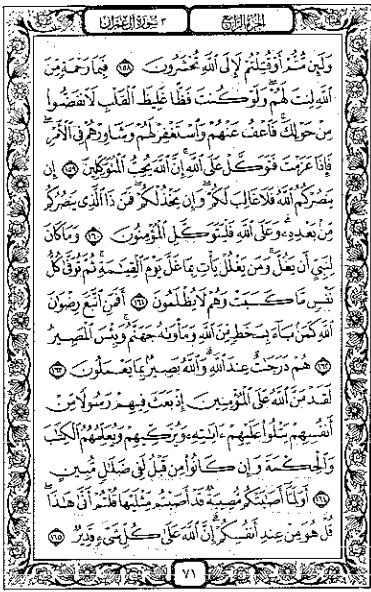 الجزء الرابع
٣ سورة آل عمران
وَلَئِن مُّتُّمْ أَوْ قُتِلْتُمْ لَإِلَى اللَّهِ تُحْشَرُونَ ١٥٨ فَبِمَا رَحْمَةٍ مِّنَ
اللَّهِ لِنتَ لَهُمْ وَلَوْ كُنتَ فَظًّا غَلِيظَ الْقَلْبِ لَانفَضُّوا
مِنْ حَوْلِكَ فَاعْفُ عَنْهُمْ وَاسْتَغْفِرْ لَهُمْ وَشَاوِرْهُمْ فِي الْأَمْرِ
فَإِذَا عَزَمْتَ فَتَوَكَّلْ عَلَى اللَّهِ إِنَّ اللَّهَ يُحِبُّ الْمُتَوَكِّلِينَ ١٥٩ إِن
يَنصُرْكُمُ اللَّهُ فَلَا غَالِبَ لَكُمْ وَإِن يَخْذُلْكُمْ فَمَن ذَا الَّذِي يَنصُرُكُم
مِّنْ بَعْدِهِ وَعَلَى اللَّهِ فَلْيَتَوَكَّلِ الْمُؤْمِنُونَ ١٦٠ وَمَا كَانَ
لِنَبِيٍّ أَن يَغُلَّ وَمَن يَغْلُلْ يَأْتِ بِمَا غَلَّ يَوْمَ الْقِيَٰمَةِ ثُمَّ تُوَفَّىٰ كُلُّ
نَفْسٍ مَّا كَسَبَتْ وَهُمْ لَا يُظْلَمُونَ ١٦١ أَفَمَنِ اتَّبَعَ رِضْوَٰنَ
اللَّهِ كَمَن بَاءَ بِسَخَطٍ مِّنَ اللَّهِ وَمَأْوَىٰهُ جَهَنَّمُ وَبِئْسَ الْمَصِيرُ
١٦٢ هُمْ دَرَجَٰتٌ عِندَ اللَّهِ وَاللَّهُ بَصِيرٌ بِمَا يَعْمَلُونَ ١٦٣
لَقَدْ مَنَّ اللَّهُ عَلَى الْمُؤْمِنِينَ إِذْ بَعَثَ فِيهِمْ رَسُولًا مِّنْ
أَنفُسِهِمْ يَتْلُوا عَلَيْهِمْ ءَايَٰتِهِ وَيُزَكِّيهِمْ وَيُعَلِّمُهُمُ الْكِتَٰبَ
وَالْحِكْمَةَ وَإِن كَانُوا مِن قَبْلُ لَفِي ضَلَٰلٍ مُّبِينٍ
١٦٤ أَوَلَمَّا أَصَٰبَتْكُم مُّصِيبَةٌ قَدْ أَصَبْتُم مِّثْلَيْهَا قُلْتُمْ أَنَّىٰ هَٰذَا
قُلْ هُوَ مِنْ عِندِ أَنفُسِكُمْ إِنَّ اللَّهَ عَلَىٰ كُلِّ شَيْءٍ قَدِيرٌ ١٦٥
٧١